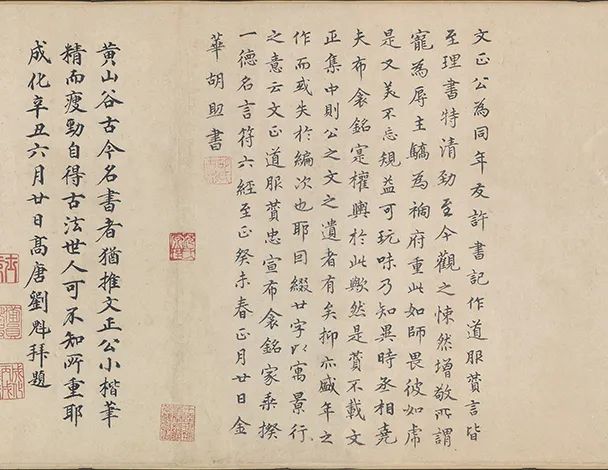 文正公為同年友許書記作道服贊言皆
至理書特清勁至今觀之悚然增敬所謂
寵為辱主驕為禍府重此如師畏彼如虎
是又美不忘規益可玩味乃知異時丞相堯
夫布衾銘寔權輿於此歟然是贊不載文
正集中則公之文之遺者有矣抑亦盛年之
作而或失於編次也耶囙綴廿字以寓景行
之意云文正道服贊忠宣布衾銘家乘揆
一德名言符六經至正癸未春正月廿日金
華胡助書
黄山谷古今名書者猶推文正公小楷筆
精而瘦勁自得古法世人可不知所重耶
成化辛丑六月廿日髙唐劉魁拜題